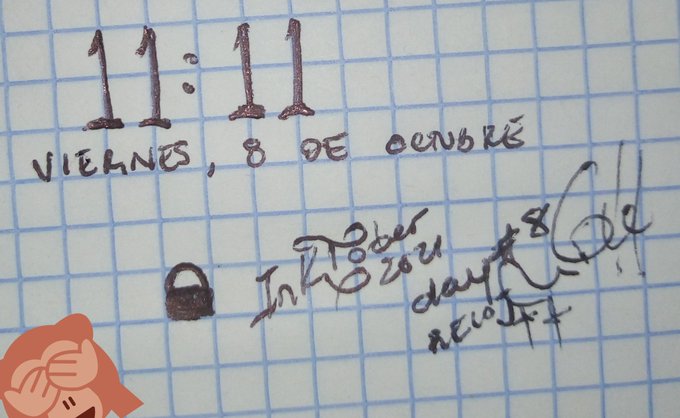 11:11
VIERNES, 8 DE OCNBRE
InkTober
2021
day # 8
RELOJ